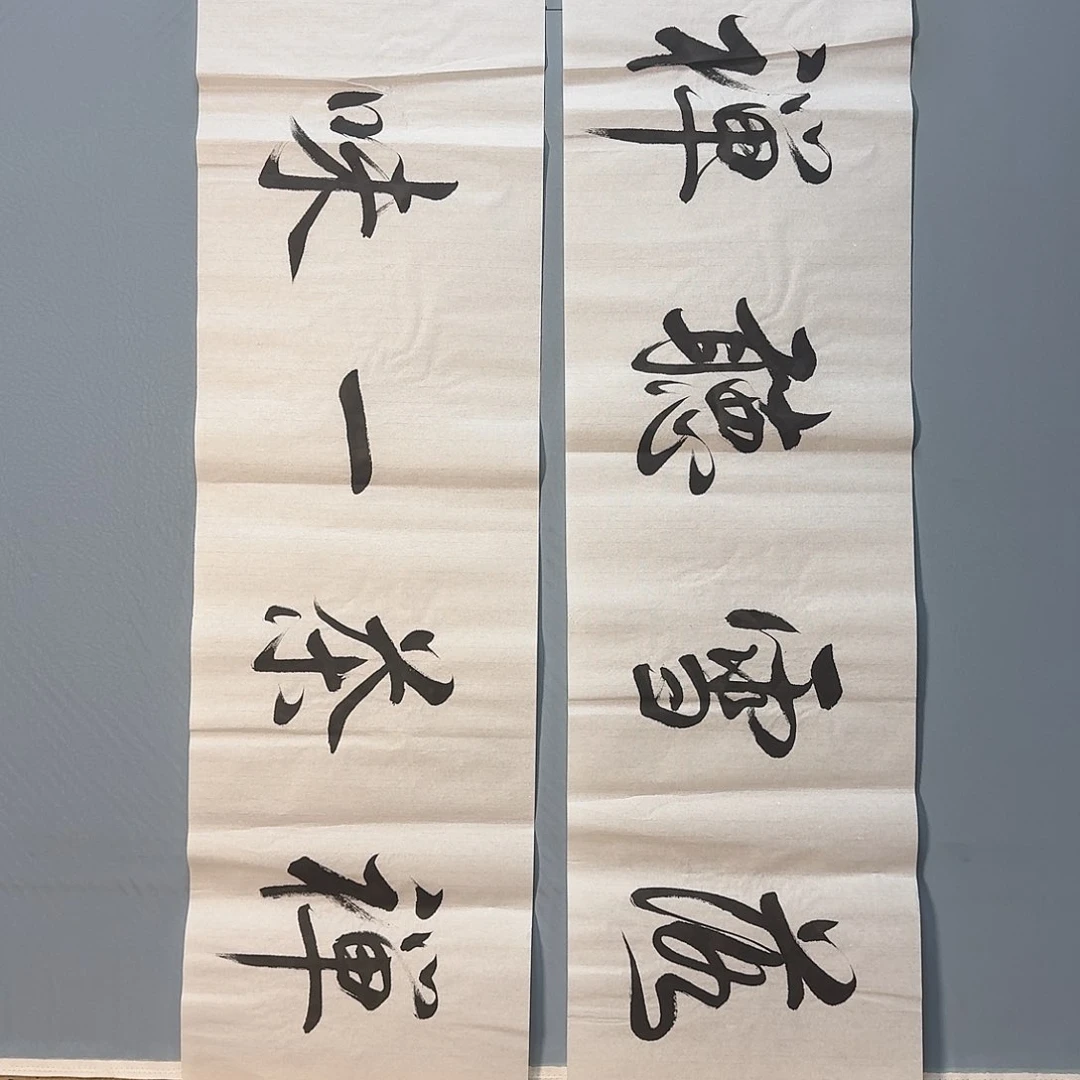 雪聽禪
禪茶一味